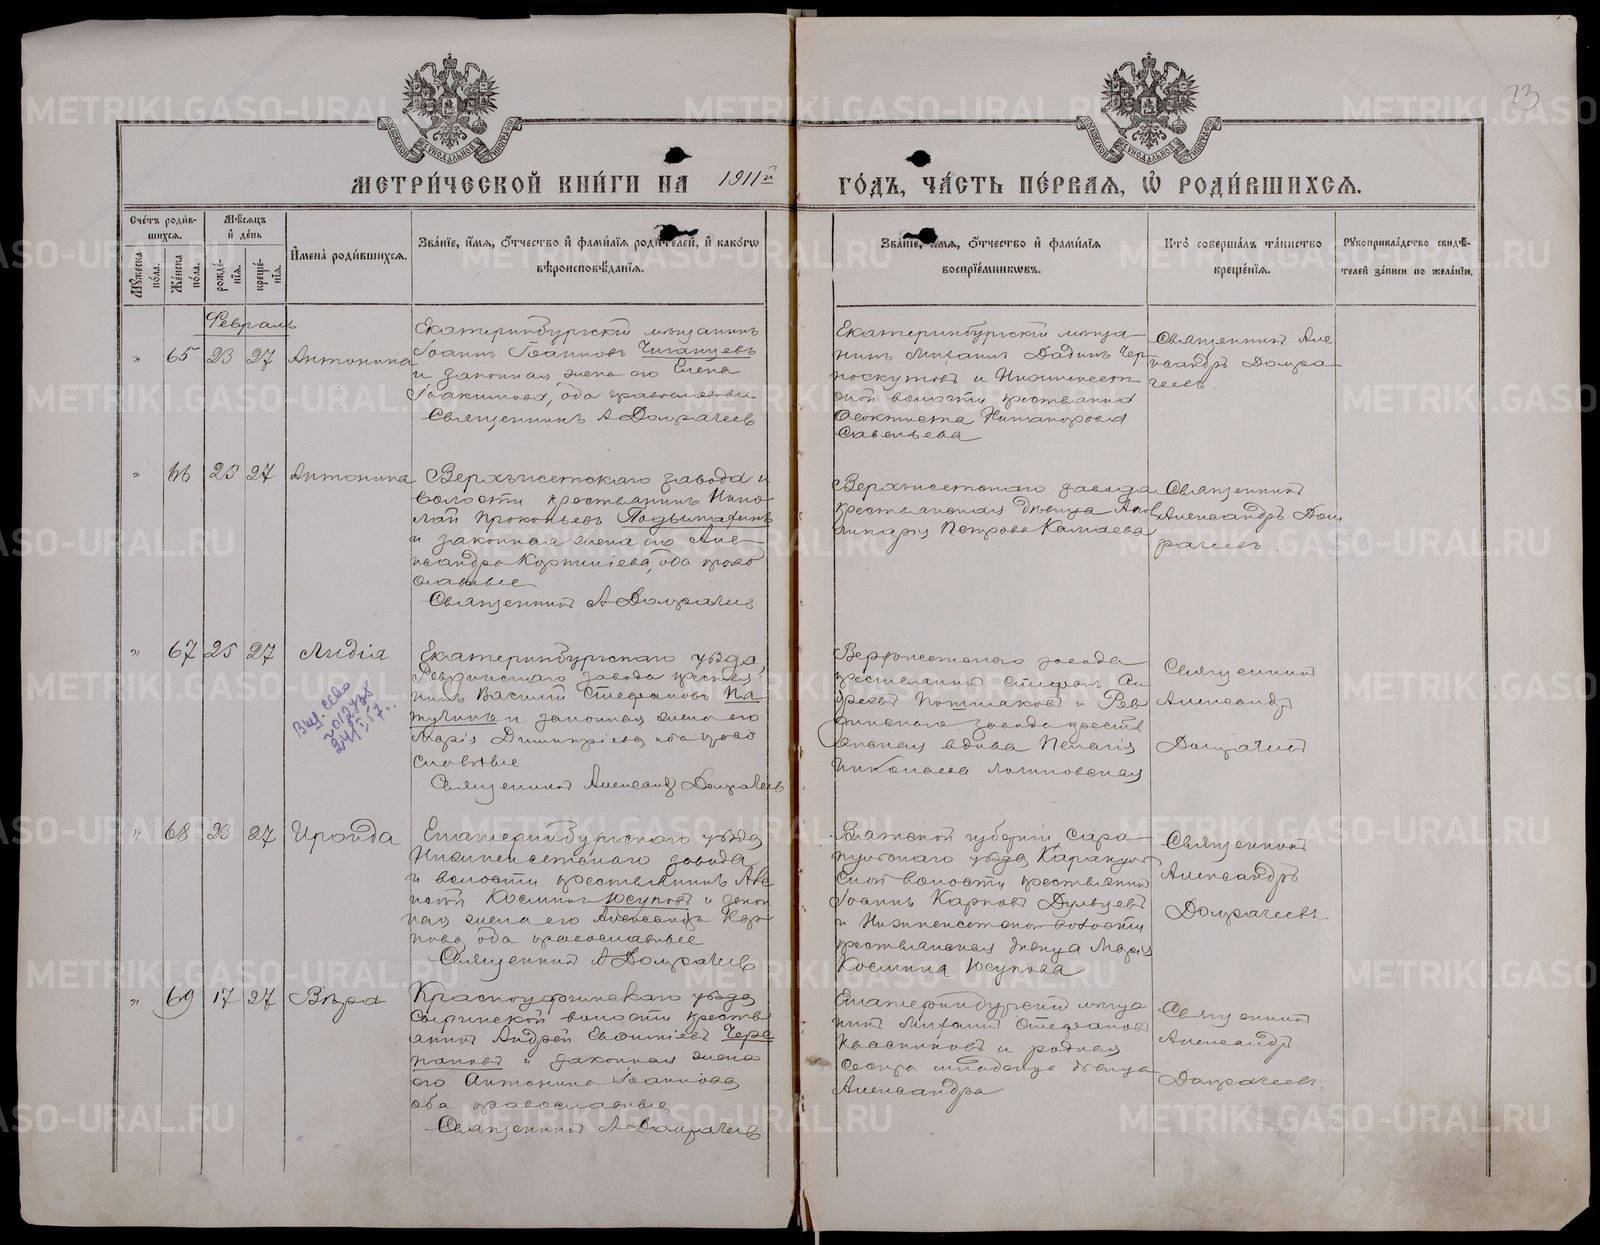 23
МЕТРИ́ЧЕСКОЙ КНИ́ГИ НА 1911й ГО́ДЪ, ЧА́СТЬ ПЕ́РВАЯ, Ѽ РОДИ́ВШИХСЯ.
Сче́тъ роди́в-
шихся.
Му́жеска по́ла.
Же́нска по́ла.
Мѣ́сяцъ
и҆ де́нь
рожде́-
нїя.
креще́-
нїя.
И҆мена̀ роди́вшихся.
Зва́нїе, и҆́мя, ѻ҆́тчество и҆ фами́лїя роди́телей, и҆ како́гѡ
вѣроисповѣ́данїя.
Зва́нїе, и҆́мя, ѻ҆́тчество и҆ фами́лїя
воспрїе́мниковъ.
Кто̀ соверша́лъ та́инство
креще́нїя.
Рꙋкоприкла́дство свидѣ́-
телей за́писи по жела́нїю.
Февраль
" 65 23 27 Антонина
Екатеринбургскій мѣщанинъ
Іоаннъ Іоанновъ
и законная жена его Елена
Іоакимова, оба православные
Священникъ А Домрачеев
Екатеринбургскій мѣща-
нинъ
и Нижнеисет-
ской волости крестьянка
Никанорова
Савельева
Священникъ Але
ксандръ Домра
чеевъ.
" 66 25 27 Антонина
Верхъисетскаго завода и
волости крестьянинъ Нико-
лай Прокопьевъ
и законная жена его Але-
ксандра Корнилiева, оба право
славные
Священникъ А Домрачеев
Верхъисетскаго завода
крестьянская дѣвица Апол
линарія Петрова Камаева
Священникъ
Александръ Дом
рачеевъ
" 67 25 27 Лидія
Екатеринбургскаго уѣзда,
Ревдинскаго завода крестья
нинъ Василій Стефановъ
и законная жена его
Марія Димитріева оба право
славные
Священникъ Александръ Домрачеев
Верхъисетскаго завода
крестьянинъ Стефанъ Ан
дреевъ и Рев
динскаго завода крестья
янская вдова Пелагія
Николаева
Священникъ
Александръ
Домрачеев
" 68 23 27 Ираида
Екатеринбургскаго уѣзда
Нижнеисетскаго завода
и волости крестьянинъ Але
ксѣй Косминъ Юсуповъ и закон
ная жена его Александра Кар
пова оба православные
Священникъ А Домрачеев
Вятской губерніи, Сара
пульскаго уѣзда
ской волости крестьянинъ
Іоаннъ Карповъ
и Нижнеисетской волости
крестьянская дѣвица Марія
Космина Юсупова
Священникъ
Александръ
Домрачеевъ.
" 69 17 27 Вѣра
Красноуфимскаго уѣзда
волости кресть
янинъ Андрей Евфиміевъ Чере
пановъ и законная жена
его Антонина Іоаннова
оба православные
Священникъ А Домрачеев
Екатеринбургскій мѣща
нинъ Михаилъ Стефановъ
Квасниковъ и родная
сестра младенца дѣвица
Александра
Священникъ
Александръ
Домрачеевъ.
METRIKI.GASO-URAL.RU